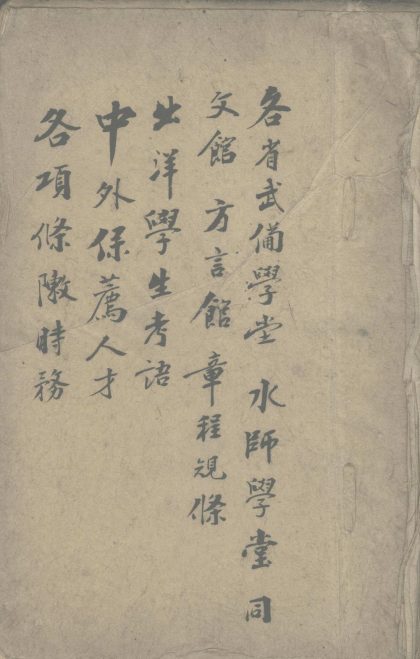 各省武備學堂 水師學堂 同
文館 方言館 章程規條
出洋學生考語
中外保薦人才
各項條陳時務